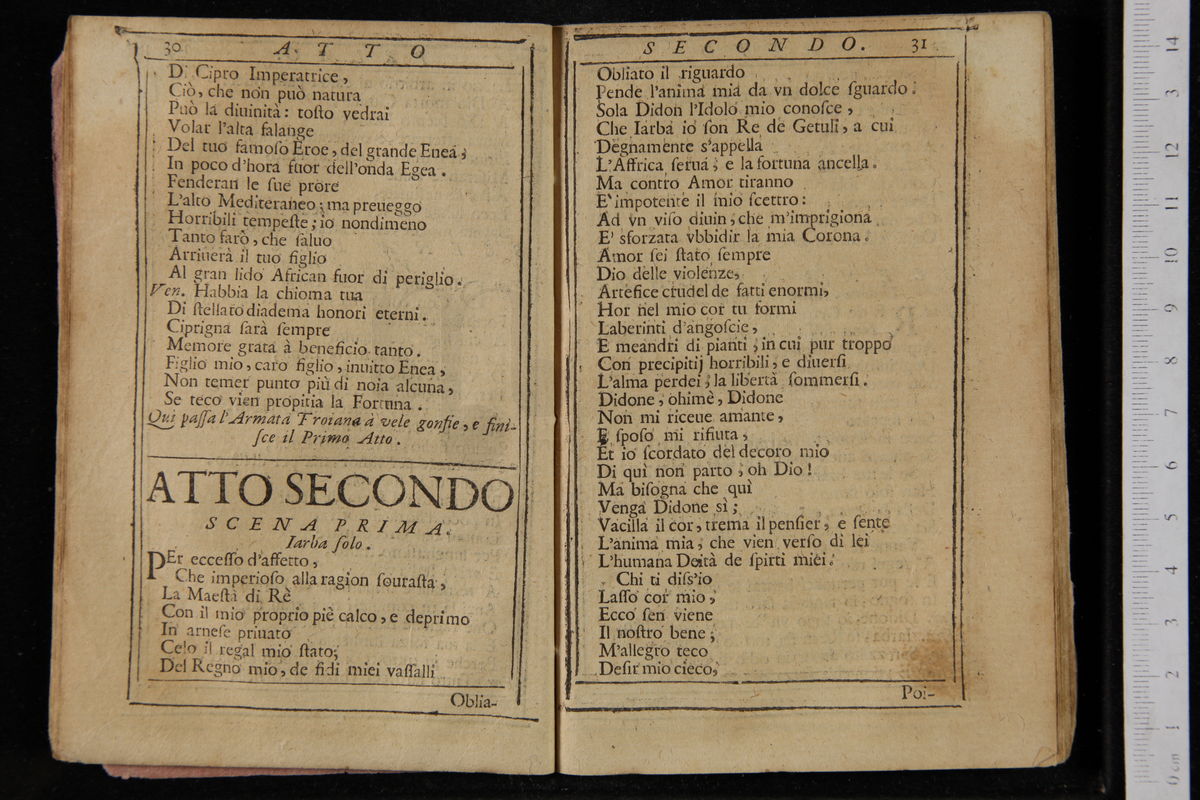 30 ATTO
Di Cipro Imperatrice,
Ciò, che non può natura
Può la diuinità: toſto vedrai
Volar l'alta falange
Del tuo famoſo Eroe, del grande Enea;
In poco d'hora fuor dell'onda Egea.
Fenderan le ſue prore
L'alto Mediteraneo; ma preueggo
Horribili tempeſte; io nondimeno
Tanto farò, che ſaluo
Arriuerà il tuo figlio
Al gran lido African fuor di periglio.
Ven. Habbia la chioma tua
Di ſtellato diadema honori eterni.
Ciprigna ſarà ſempre
Memore grata à beneficio tanto.
Figlio mio, caro figlio, inuitto Enea,
Non temer punto più di noia alcuna,
Se teco vien propitia la Fortuna.
Qui paſſa l'Armata Troiana à vele gonfie, e fini-
ſce il Primo Atto.
ATTO SECONDO
SCENA PRIMA.
Iarba ſolo.
PEr ecceſſo d'affetto,
Che imperioſo alla ragion ſouraſta,
La Maeſtà di Rè
Con il mio proprio piè calco, e deprimo
In arneſe priuato
Celo il regal mio ſtato;
Del Regno mio, de fidi miei vaſſalli
Oblia-
SECONDO. 31
Obliato il riguardo
Pende l'anima mia da vn dolce ſguardo.
Sola Didon l'Idolo mio conoſce,
Che Iarba io ſon Re de Getuli, a cui
Degnamente s'appella
L'Affrica ſerua, e la fortuna ancella.
Ma contro Amor tiranno
E' impotente il mio ſcettro:
Ad vn viſo diuin, che m'imprigiona
E' sforzata vbbidir la mia Corona.
Amor ſei ſtato ſempre
Dio delle violenze,
Artefice crudel de fatti enormi,
Hor nel mio cor tu formi
Laberinti d'angoſcie,
E meandri di pianti, in cui pur troppo
Con precipitij horribili, e diuerſi
L'alma perdei, la libertà ſommerſi.
Didone, ohimè, Didone
Non mi riceue amante,
E ſpoſo mi rifiuta,
Et io ſcordato del decoro mio
Di quì non parto, oh Dio!
Ma biſogna che quì
Venga Didone sì;
Vacilla il cor, trema il penſier, e ſente
L'anima mia, che vien verſo di lei
L'humana Deità de ſpirti miei.
Chi ti diſs'io
Laſſo cor mio,
Ecco ſen viene
Il noſtro bene;
M'allegro teco
Deſir mio cieco,
Poi-
14
13
12
11
10
9
8
7
6
5
4
3
2
1
0 cm